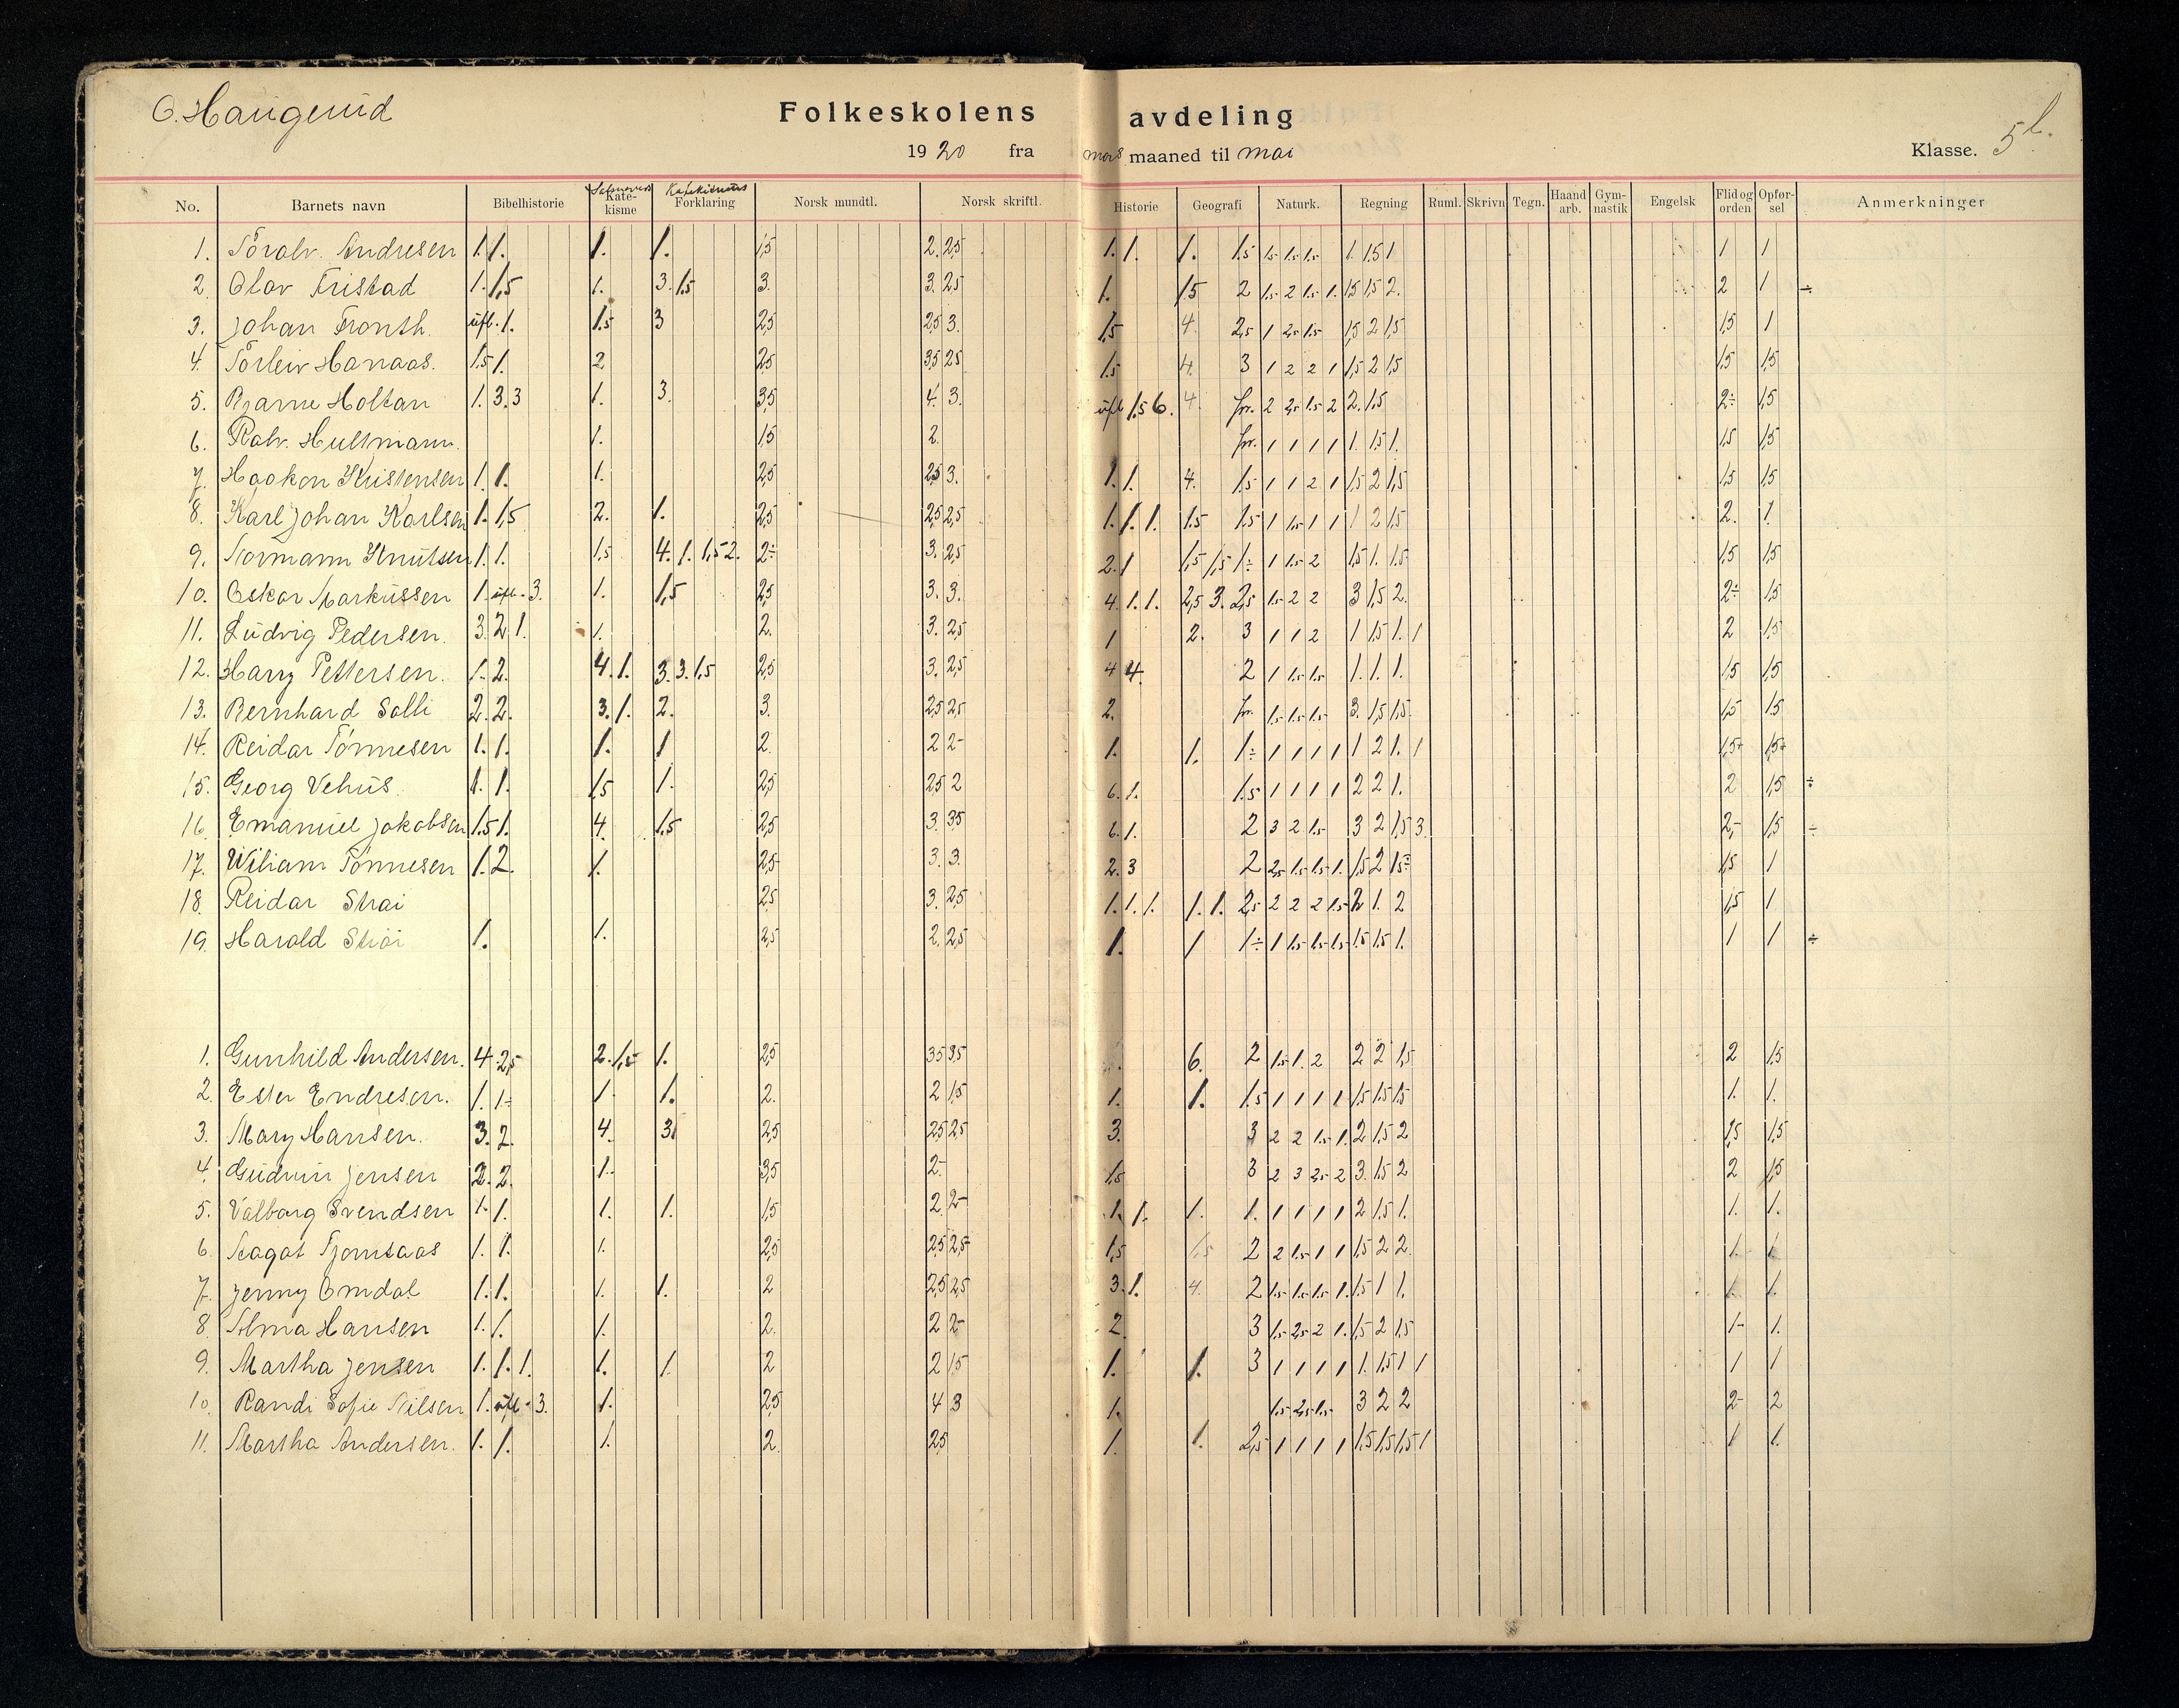 O. Haugerud
Folkeskolens avdeling
1920 fra mars maaned til mai Klasse. 5 l.
No. Barnets navn Bibelhistorie Kate-kisme Katekismus Forklaring Norsk mundtl. Norsk skriftl. Historie Geografi Naturk. Regning Ruml. Skrivn Tegn. Haand arb. Gym-nastik Engelsk Flid og orden Opfør-sel Anmerkninger
1. Toralv. Andresen 1. 1. 1. 1. 1,5 2. 2,5 1. 1. 1. 1.5 1.5 1.5 1.5 1. 1.5 1 1 1
2. Olav Fristad 1. 1,5 1. 3. 1.5 3. 3. 2.5 1. 1.5 2 1.5 2 1.5 1. 1.5 1.5 2. 2 1 ÷
3. Johan Fronth. ufl. 1. 1.5 3 2,5 2.5 3. 1,5 4. 2,5 1 2,5 1.5 1,5 2 1,5 1,5 1
4. Torleiv Hanaas. 1.5 1. 2 2,5 3,5 2.5 1.5 4. 3 1 2 2 1 1,5 2 1,5 1,5 1,5
5. Bjarne Holtan 1. 3. 3 1. 3. 3,5 4. 3. ufl 1.5 6. 4. fr. 2 2,5 1.5 2 2. 1.5 2÷ 1,5
6. Ralv. Hultmann. 1. 1,5 2. fr. 1 1 1 1 1. 1.5 1. 1,5 1,5
7. Haakon Kristensen 1. 1. 1. 2,5 2,5 3. 1. 1. 4. 1.5 1 1 2 1 1,5 2 1,5 1,5 1,5
8. Karl Johan Karlsen 1. 1,5 2. 1. 2,5 2,5 2,5 1. 1. 1. 1.5 1.5 1 1.5 1 1 1 2 1,5 2. 1.
9. Normann Knutsen 1. 1. 1,5 4. 1. 1,5 2. 2÷ 3. 2,5 2. 1 1,5 1,5 1÷ 1 1.5 2 1,5 1. 1.5 1,5 1,5
10. Oskar Markussen 1. ufl. 3. 1. 1,5 2,5 3. 3. 4. 1. 1. 2,5 3. 2,5 1.5 2 2 3 1,5 2. 2÷ 1,5
11. Ludvig Pedersen. 3. 2 1. 1. 2. 3. 2,5 1 2. 3 1 1 2 1 1.5 1. 1 2 1,5
12. Harry Pettersen. 1. 2. 4. 1. 3. 3. 1,5 2,5 3. 2,5 4 4. 2 1 1.5 1.5 1. 1. 1. 1,5 1,5
13. Bernhard Solli 2. 2. 3. 1. 2. 3. 2,5 2,5 2. fr. 1.5 1.5 1.5 3. 1,5 1,5 1,5 1.5
14. Reidar Tönnesen 1. 1. 1. 1 2. 2 2- 1. 1. 1÷ 1 1 1 1 1 2 1. 1 1,5+ 1,5+
15. Georg Vehus. 1. 1. 1,5 1. 2,5 2,5 2 6. 1. 1.5 1 1 1 1 2 2 1. 2 1,5 ÷
16. Emanuel Jakobsen 1.5 1. 4. 1,5 2,5 3. 3,5 6. 1. 2 3 2 1.5 3 2 1,5 3. 2,- 1,5 ÷
17. Wiliam Tönnesen 1. 2. 1. 2,5- 3. 3. 2. 3 2 2,5 1.5 1.5 1. 1,5 2 1.5÷ 1,5 1
18. Reidar Strai 2,5 3. 2,5 1. 1. 1. 1. 1. 2,5 2 2 2 1.5 2 1. 2 1,5 1
19. Harald Strai 1. 1. 2,5 2. 2,5 1. 1 1÷ 1 1.5 1.5 1.5 1.5 1.5 1. 1 1 ÷
1. Gunhild Andersen. 4. 2,5 2. 1,5 1. 2,5 3,5 3,5 6. 2 1.5 1. 2 2 2 1,5 2 1,5
2. Ester Endresen. 1. 1÷ 1. 1. 2. 2 1,5 1. 1. 1.5 1 1 1 1 1,5 1.5 1.5 1. 1.
3. Mary Hansen. 3. 2. 4. 3 2,5 2,5 2,5 3. 3 2 2 1.5 1. 2 1,5 2 1,5 1,5
4. Gudrun Jensen 2. 2. 1. 3,5 2- 1,5 3 2 3 2,5 2 3. 1.5 2 2 1,5
5. Valborg Svendsen 1. 1. 1. 1. 1,5 2. 2- 1. 1. 1. 1. 1 1 1 1 2 1.5 1. 1. 1.
6 Aagot Tjomsaas 1. 1. 1. 2,5 2,5 2,5- 1,5 1.5 2 2 1.5 1 1 1,5 2 2. 1. 1.
7. Jenny Omdal 1. 1. 1. 1. 2 2,5 2,5 3. 1. 4. 2 1.5 1.5 1.5 1. 1.5 1 1. 1. 1.
8. Alma Hansen 1. 1. 1. 2. 2 2- 2. 3 1.5 2,5 2 1. 1,5 2 1,5 1- 1.
9. Martha Jensen 1. 1. 1. 1. 1. 2 2 1.5 1. 1. 3 1 1 1 1 1. 1.5 1 1 1 1
10. Randi Sofie Nilsen 1. ufl. 3. 1. 2,5 4 3 1. 1.5 2,5 1.5 3 2 2 2- 2
11. Martha Andersen. 1. 1. 1. 2. 2,5 1. 1. 2,5 1 1 1 1 1,5 1,5 1,5 1 1 1.